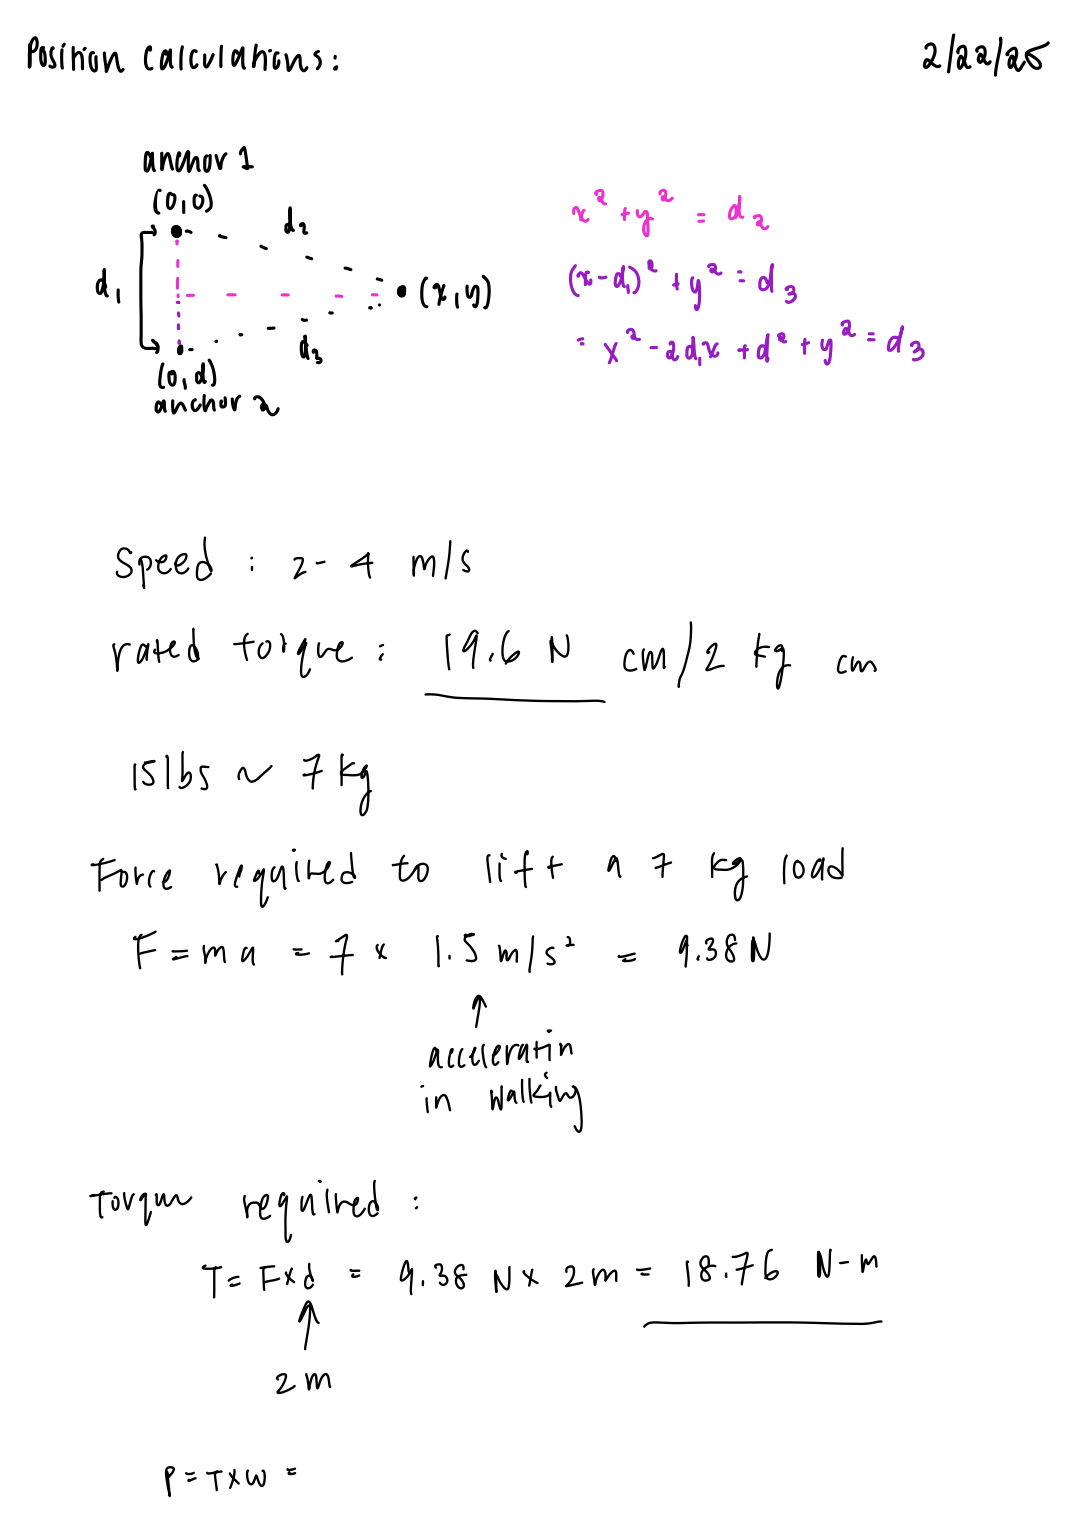 Position Calculations:
2/22/25
anchor 1
(0,0)
d₂
d₁
(x,y)
d₃
(0,d)
anchor 2
x² + y² = d₂
(x-d₁)² + y² = d₃
= x² - 2d₁x + d² + y² = d₃
Speed : 2-4 m/s
rated torque : 19.6 N cm/2 kg cm
15lbs ~ 7kg
Force required to lift a 7 kg load
F = ma = 7 x 1.5 m/s² = 9.38 N
acceleratin
in walking
required :
T = Fxd = 9.38 N x 2m = 18.76 N-m
2 m
P = TxW =